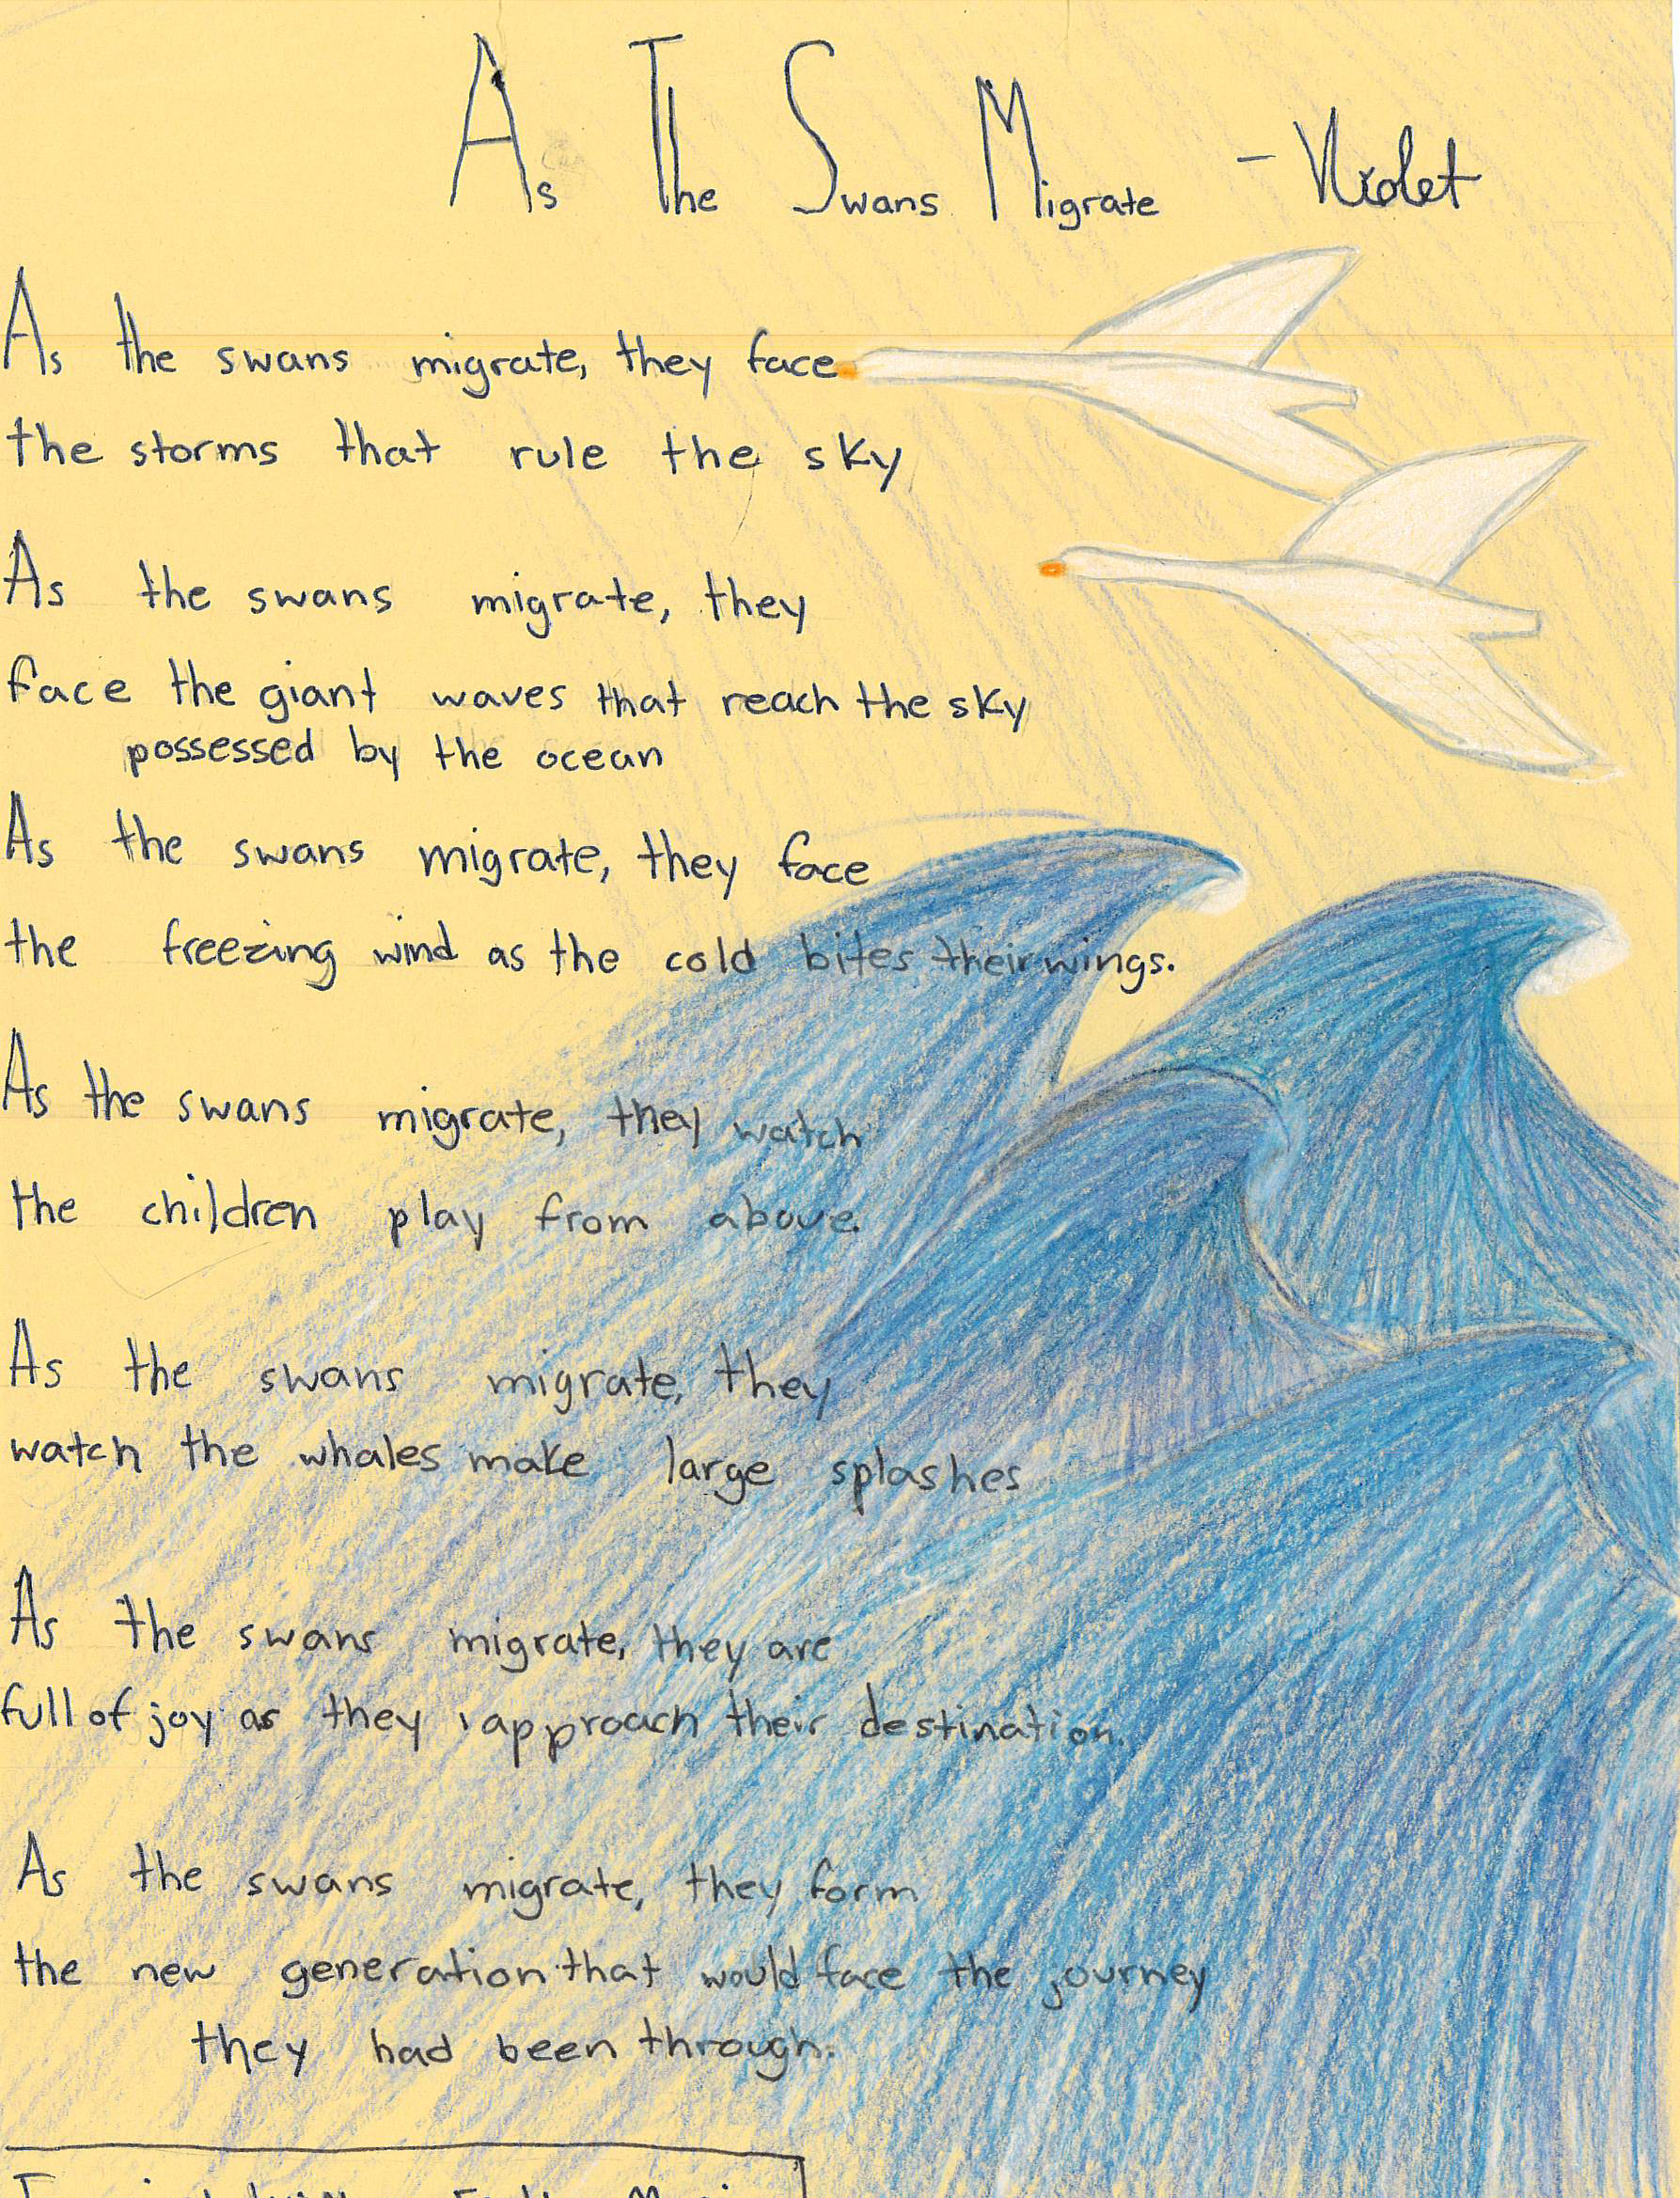 As The Swans Migrate - Violet
As the swans migrate, they face
the storms that rule the sky
As the swans migrate, they
face the giant waves that reach the sky
possessed by the ocean
As the swans migrate, they face
the freezing wind as the cold bites their wings.
As the swans migrate, they watch
the children play from above.
As the swans migrate, they
watch the whales make large splashes
As the swans migrate, they are
full of joy as they approach their destination.
As the swans migrate, they form
the new generation that would face the journey
they had been through.